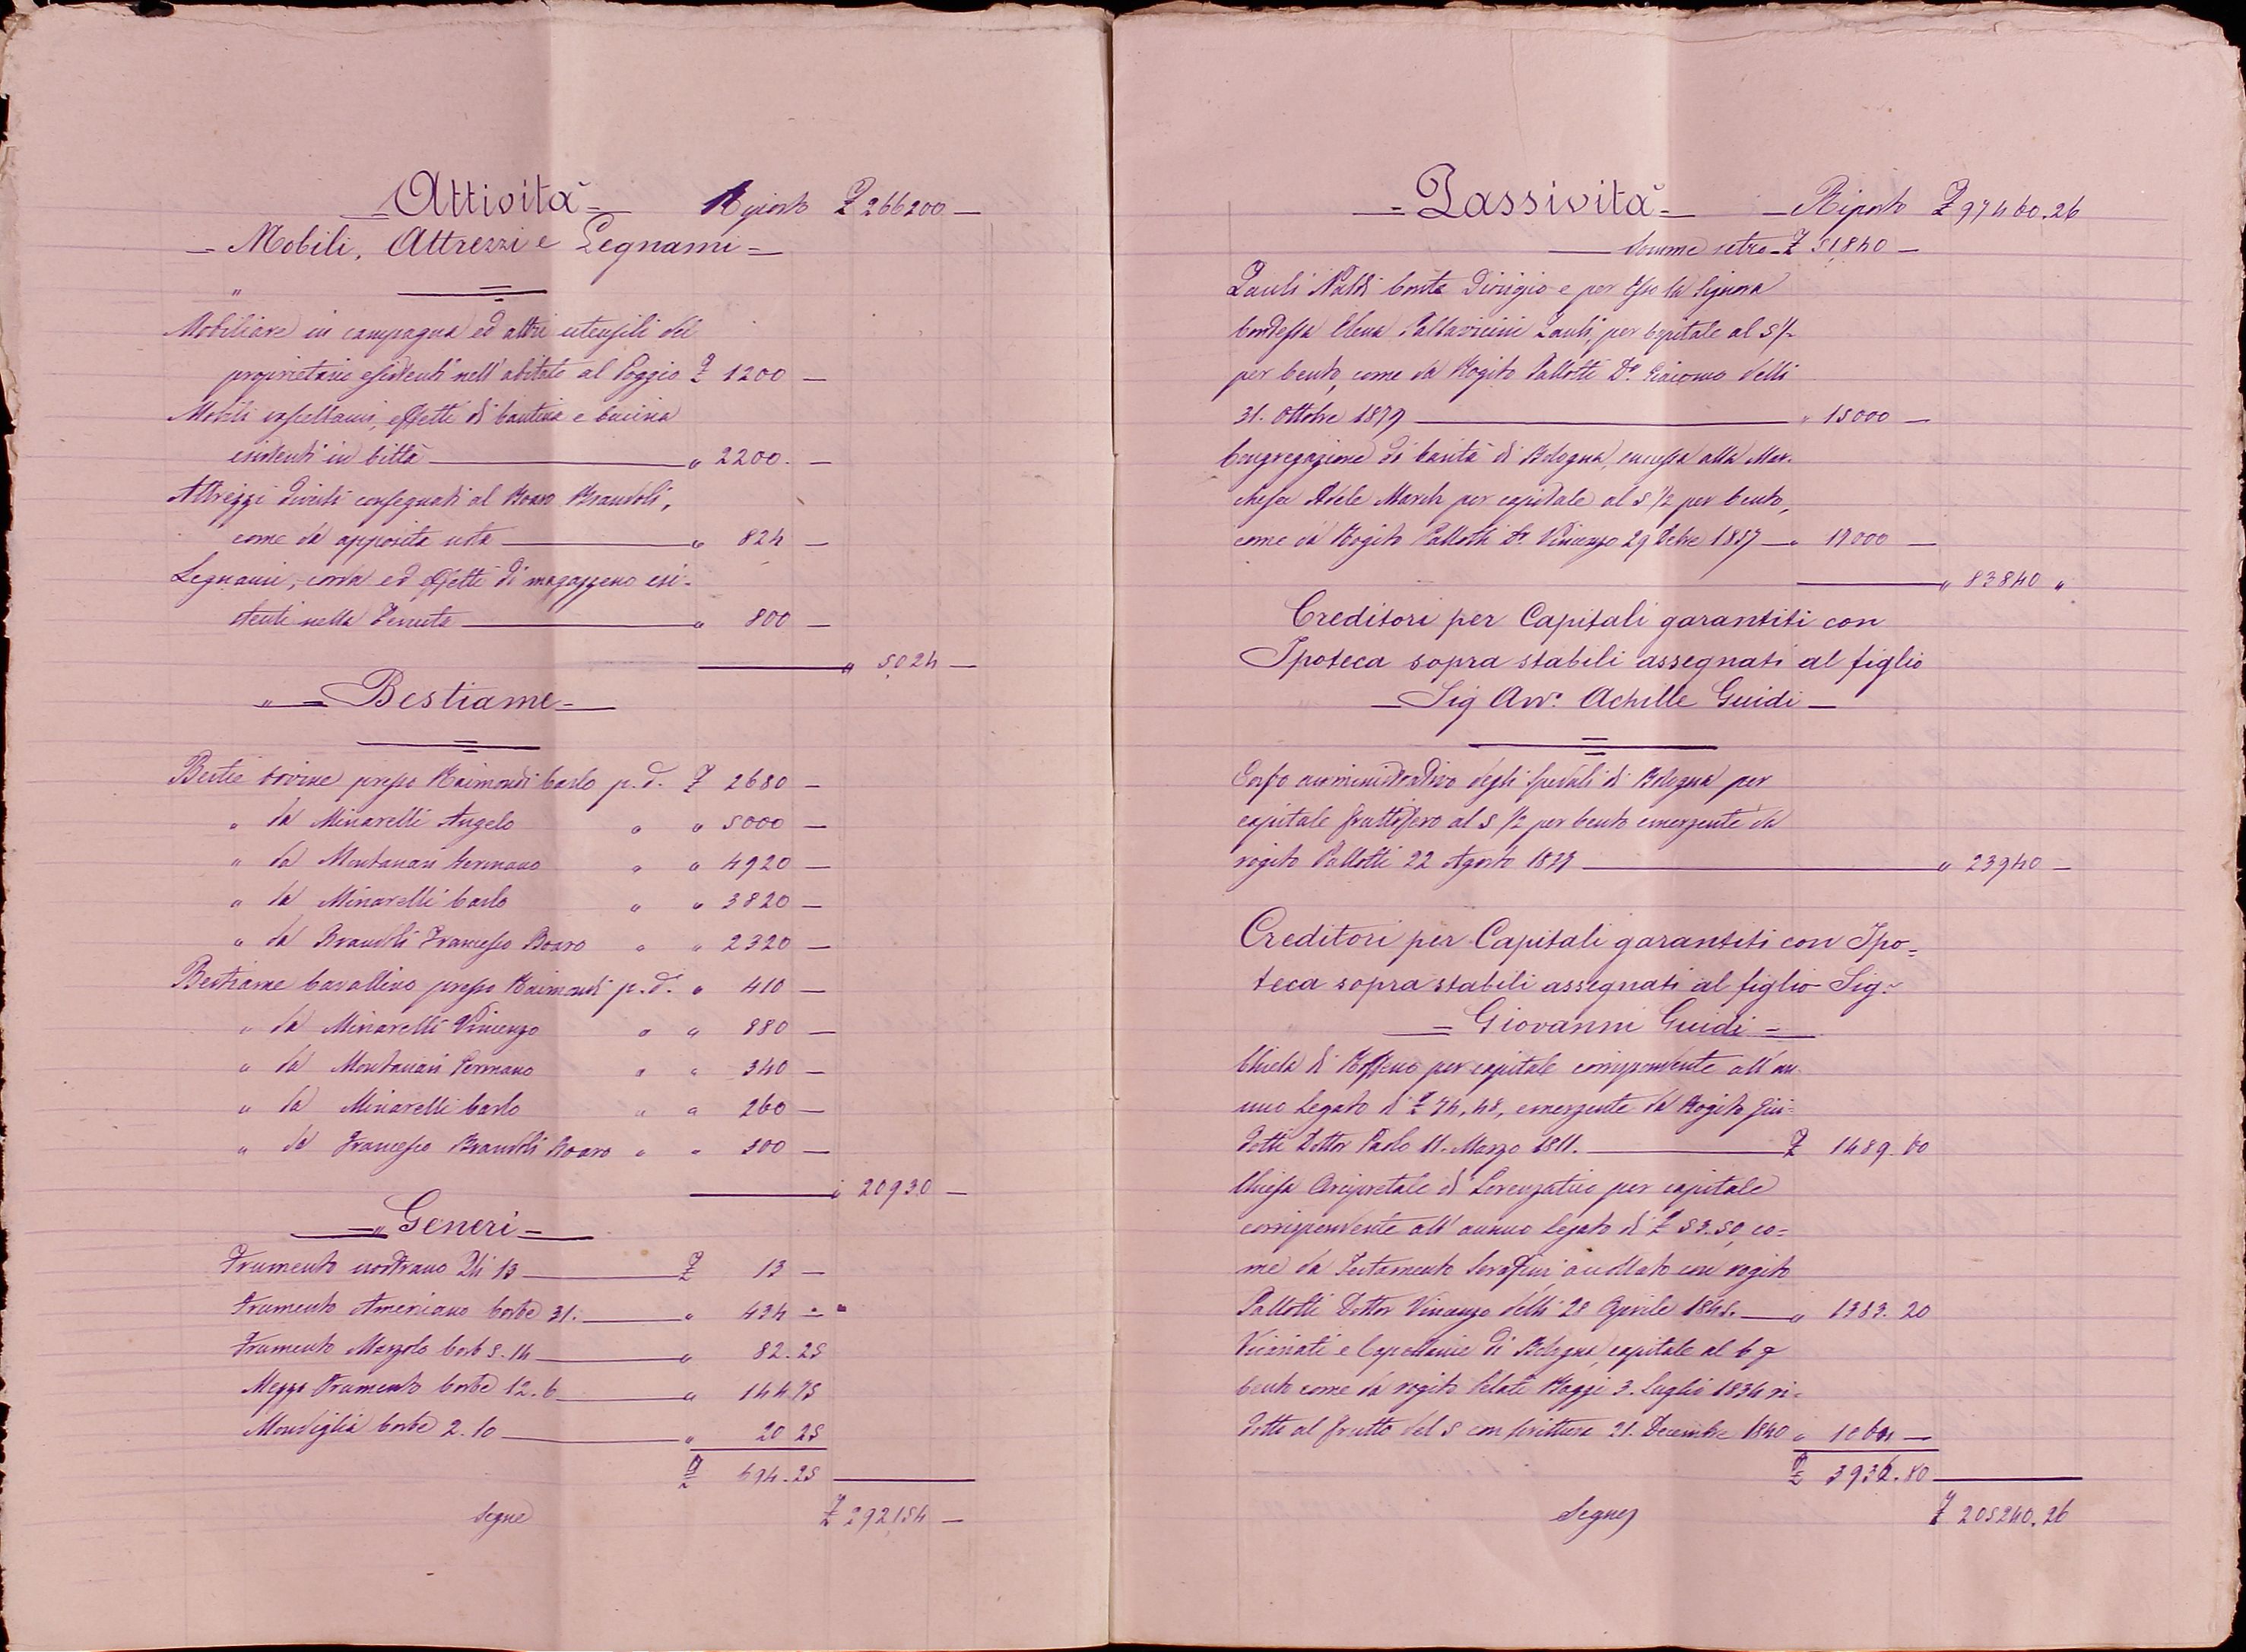 Attività Riporto £ 266200 —
Mobili, Attrezzi e Legnami
"
Mobiliare in campagna ed altri utensili del
proprietario esistenti nell'abitato al Poggio £ 1200 —
Mobili, effetti di Cantina e Cucina
esistenti in Città " 2200. —
Attrezzi diversi consegnati al Boaro Brandoli,
come da apposita nota " 824 —
Legnami, corda ed effetti di magazzeno esi-
stenti nella Tenuta " 800 —
" 5024 —
" Bestiame
Bestie bovine presso Raimondi Carlo p. d. £ 2680 —
" da Minarelli Angelo " " 5000 —
" da Montanari Germano " " 4920 —
" da Minarelli Carlo " " 3820 —
" da Brandoli Francesco Boaro " " 2320 —
Bestiame Cavallino presso Raimondi p. d. " 410 —
" da Minarelli Vincenzo " " 880 —
" da Montanari Germano " " 340 —
" da Minarelli Carlo " " 260 —
" da Francesco Brandoli Boaro " " 300 —
" 20930 —
" Generi
Frumento nostrano 13 £ 13 —
Frumento Americano Corbe 31. " 434 — "
Frumento Marzolo Corb 5.14 " 82.25
Mezzo Frumento Corbe 12.6 " 144 75
Mondiglia Corbe 2.10 " 20 25
£ 694.25
Segue £ 292154 —
Passività Riporto £ 97460.26
Somme retro £ 51,840 —
Zauli Naldi Conte Dionigio e per Esso la Signora
Contessa Elena Pallavicini Zauli, per Capitale al 5 1/2
per Cento, come da Rogito Pallotti Dr. Giacomo delli
31. Ottobre 1879 " 15000 —
Congregazione di Carità di Bologna, successa alla Mar-
chesa Adele Marsh per capitale al 5 1/2 per Cento,
come da Rogito Pallotti Dr. Vincenzo 29 1857 " 17000 —
" 83840 "
Creditori per Capitali garantiti con
Ipoteca sopra stabili assegnati al figlio
Sig Avv. Achille Guidi
Corpo amministrativo degli Spedali di Bologna per
capitale fruttifero al 5 1/2 per Cento emergente da
rogito Pallotti 22 Agosto 1837 " 23940 —
Creditori per Capitali garantiti con Ipo=
teca sopra stabili assegnati al figlio Sig.r
Giovanni Guidi
Chiesa di Roffeno per capitale corrispondente all'an-
nuo Legato di £ 74,48, emergente da Rogito Gui=
dotti Dottor Paolo 11. Marzo 1811. £ 1489.60
Chiesa Arcipretale di Lorenzatico per capitale
corrispondente all'annuo Legato di £ 53.50, co=
me da Testamento Serafini con rogito
Pallotti Dottor Vincenzo delli 28 Aprile 1848. " 1383.20
Vicariati e Cappellanie di Bologna, capitale al 6 p
Cento come da rogito Baggi 3. Luglio 1834 ri=
dotto al frutto del 5 con scrittura 21. Decembre 1840 " 1064 —
£ 3936.80
Segue £ 205240.26